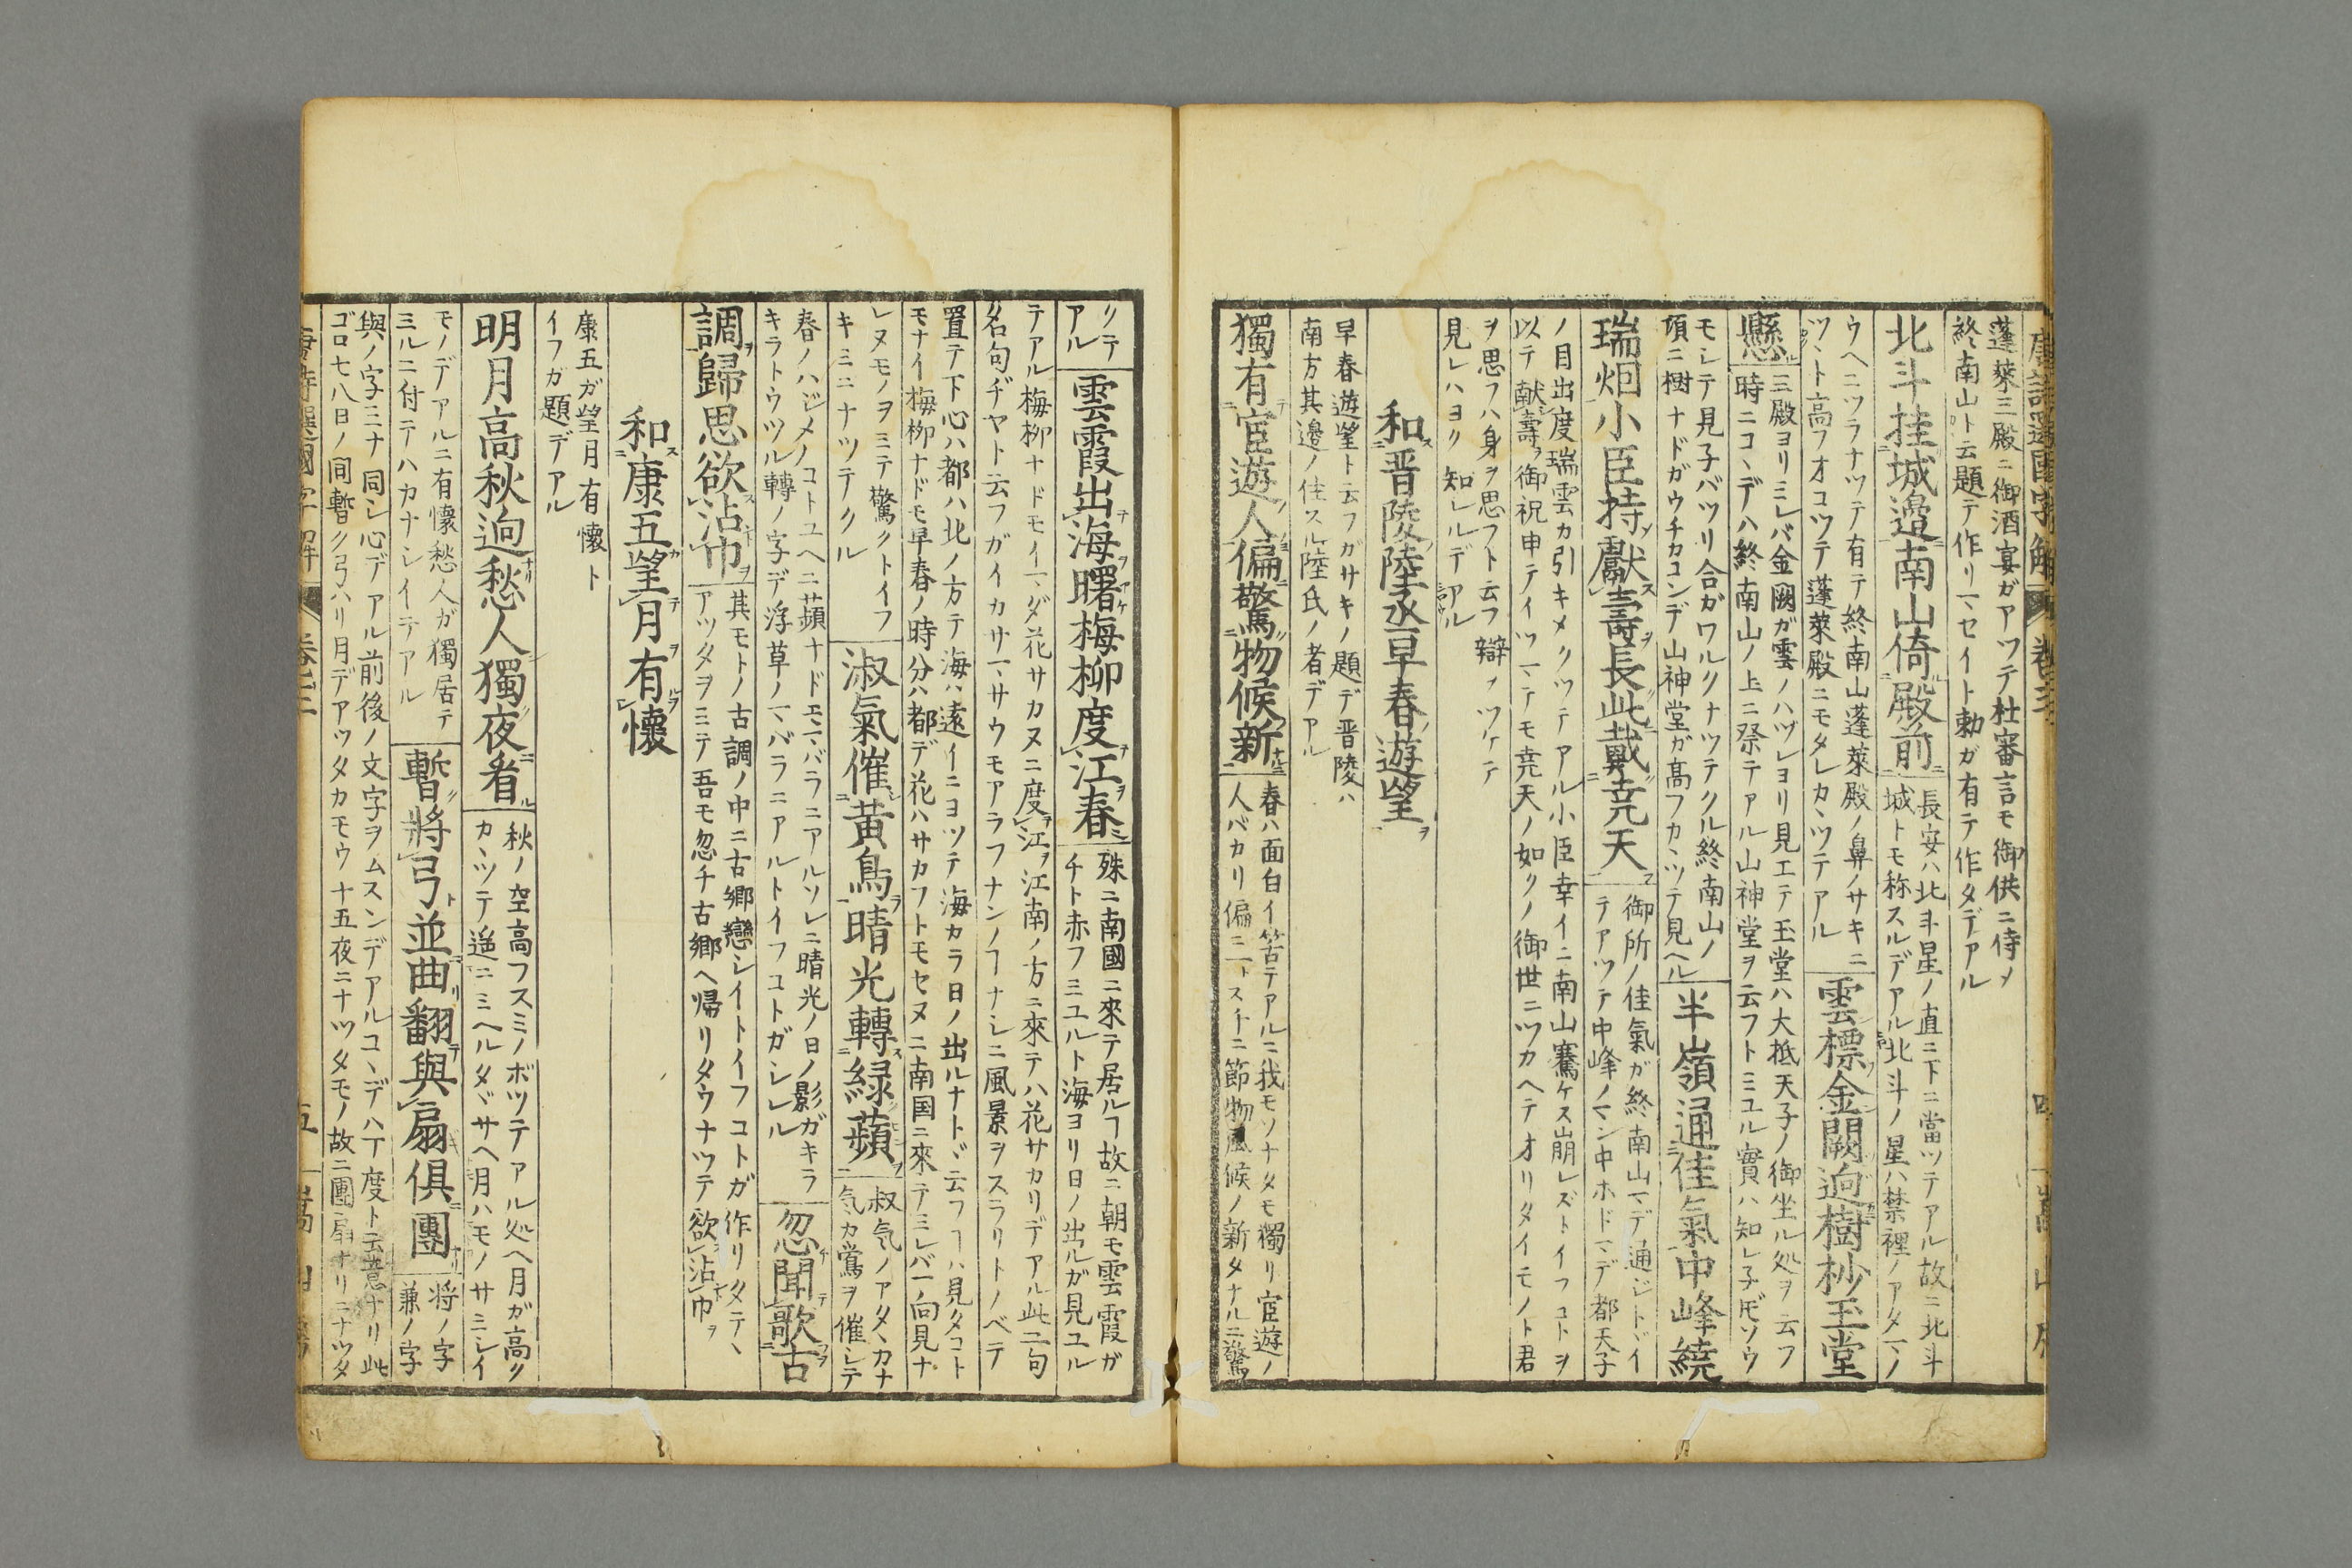 唐詩選國字解 卷三 四 嵩山房
蓬萊三殿ニ御酒宴ガアツテ杜審言モ御供ニ侍メ
終南山ト云題テ作リマセイト勅ガ有テ作タデアル
北斗挂城邊南山倚殿前
長安ハ北斗星ノ直ニ下ニ當ツテアル故ニ北斗
城トモ称スルデアル北斗ノ星ハ禁裡ノアタマノ
ウヘニツラナツテ有テ終南山蓬萊殿ノ鼻ノサキニ
ツヽト高フオコツテ蓬萊殿ニモタレカヽツテアル
雲標金闕逈樹杪玉堂
懸
三殿ヨリミレバ金闕ガ雲ノハヅレヨリ見エテ玉堂ハ大抵天子ノ御坐ル処ヲ云フ
時ニコヽデハ終南山ノ上ニ祭テアル山神堂ヲ云フトミユル實ハ知レ子ドモソウ
モシテ見子バツリ合ガワルクナツテクル終南山ノ
項ニ樹ナドガウチカコンデ山神堂ガ高フカヽツテ見ヘル
半嶺通佳氣中峰繞
瑞烟小臣持獻壽長此戴堯天
御所ノ佳氣ガ終南山マデ通ジトヾイ
テアツテ中峰ノマン中ホドマデ都天子
ノ目出度瑞雲カ引キメクツテアル小臣幸イニ南山騫ケス崩レズトイフコトヲ
以テ献壽ヲ御祝申テイツマテモ堯天ノ如クノ御世ニツカヘテオリタイモノト君
ヲ思フハ身ヲ思フト云フ辯ヲツケテ
見レハヨク知レルデアル
和晋陵陸丞早春遊望
早春遊望ト云フガサキノ題デ晋陵ハ
南方其邊ノ住スル陸氏ノ者デアル
獨有宦遊人偏驚物候新
春ハ面白イ筈テアルニ我モソナタモ獨リ宦遊ノ
人バカリ偏ニ一トスヂニ節物風候ノ新タナルニ驚
クテ
アル
雲霞出海曙梅柳度江春
殊ニ南國ニ來テ居ルフ故ニ朝モ雲霞ガ
チト赤フミユルト海ヨリ日ノ出ルガ見ユル
テアル梅柳ナドモイマダ花サカヌニ度江ヲ江南ノ方ニ來テハ花サカリデアル此二句
名句ヂヤト云フガイカサマサウモアラフナンノフナシニ風景ヲスラリトノベテ
置テ下心ハ都ハ北ノ方テ海ハ遠イニヨツテ海カラ日ノ出ルナトヽ云フフハ見タコト
モナイ梅柳ナドモ早春ノ時分ハ都デ花ハサカフトモセヌニ南国ニ來テミレバ一向見ナ
レヌモノヲミテ驚クトイフ
キミニナツテクル
淑氣催黃鳥晴光轉緑蘋
叔気ノアタヽカナ
気カ鴬ヲ催シテ
春ノハジメノコトユヘニ蘋ナドモマバラニアルソレニ晴光ノ日ノ影ガキラ
キラトウツル轉ノ字デ浮草ノマバラニアルトイフコトガシレル
忽聞歌古
調歸思欲沾巾
其モトノ古調ノ中ニ古郷戀シイトイフコトガ作リタテヽ
アツタヲミテ吾モ忽チ古郷ヘ帰リタウナツテ欲沾巾ヲ
和康五望月有懷
康五ガ望月有懷ト
イフガ題デアル
明月高秋逈愁人獨夜看
秋ノ空高フスミノボツテアル処ヘ月ガ高ク
カヽツテ遙ニミヘルタヾサヘ月ハモノサミシイ
モノデアルニ有懷愁人ガ獨居テ
ミルニ付テハカナシイテアル
暫將弓並曲翻與扇俱團
将ノ字
兼ノ字
與ノ字ミナ同シ心デアル前後ノ文字ヲムスンデアルコヽデハ丁度ト云意ナリ此
ゴロ七八日ノ間暫ク弓ハリ月デアツタカモウ十五夜ニナツタモノ故ニ團扇ナリニナツタ
唐詩選國字解 卷三 五 嵩山房